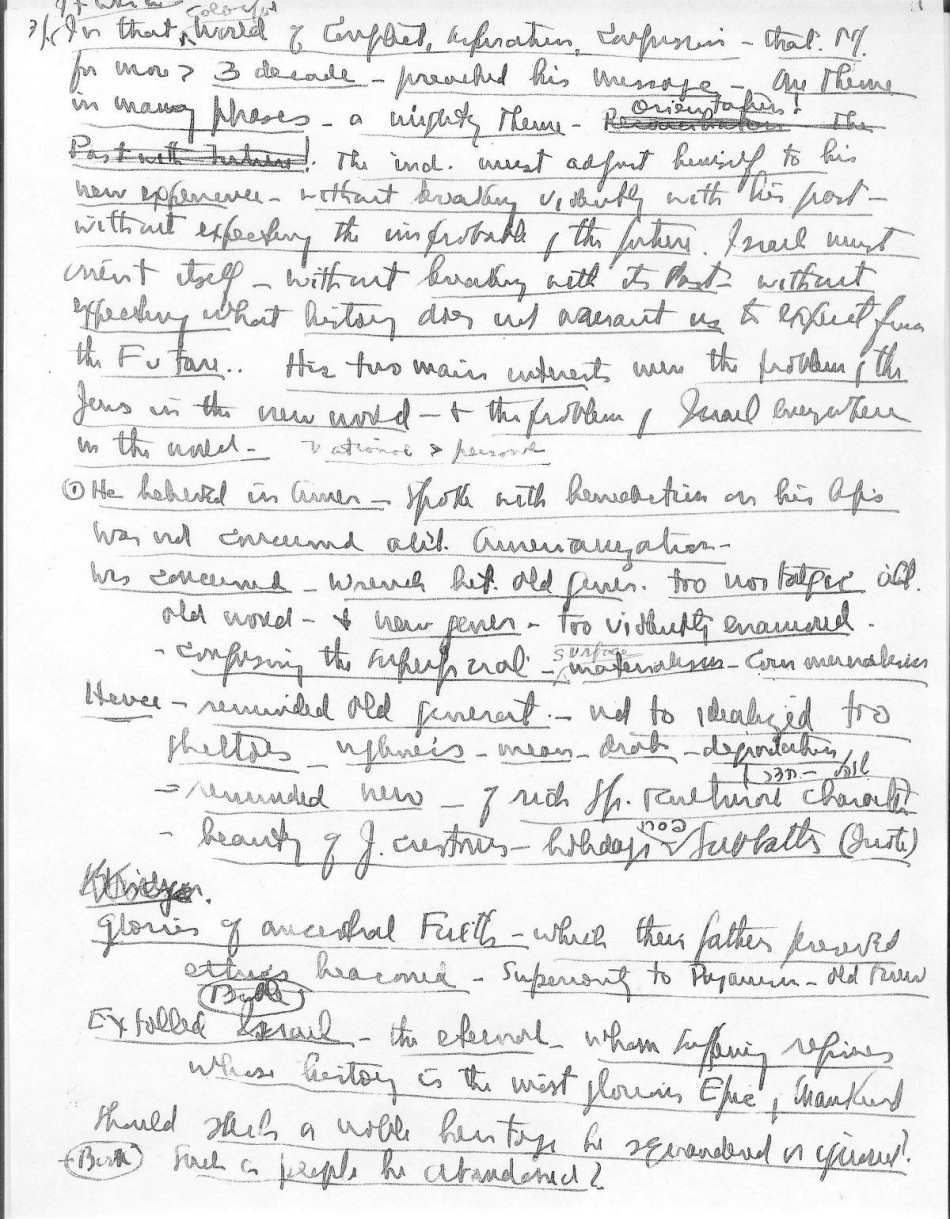 3/ In that colorful World of Conflict, Aspiration, Confusion – that M.
for more > 3 decade – preached his message – One Theme
in many phases – a mighty Theme – Orientation! Reconciliation The
Past with Future. The ind. must adjust himself to his
new experience – without breaking violently with his past –
without expecting the improbable of the future. Israel must
orient itself – without breaking with its Past – without
expecting what history does not warrant us to expect from
the Future.. His two main interests were the problem of the
Jews in the new world – & the problem of Israel everywhere
in the world – National & personal
① He believed in Amer – Spoke with benediction on his lips
Was not concerned abt. Americanization –
Was concerned – wrench bet. old gener. too nostalgic abt.
old world – & new gener – too violently enamored.
– Confusing the superficial – surface materialism – Com mercialism
Hence – reminded old generat. – not to idealized too
ghettoes – ugliness – mean – drab – degradation
– reminded new – of rich Sp. & cultural character
– beauty of J. customs – holidays – Sabbaths (Quote)
Glories of ancestral Faith – which their fathers preserved
ethics beaconed – Superiority to Paganism – old & new
Extolled Israel – the eternal – whom suffering refines
whose history is the most glorious Epic of Mankind
Should such a noble heritage be squandered or ignored?
Such a people be abandoned?